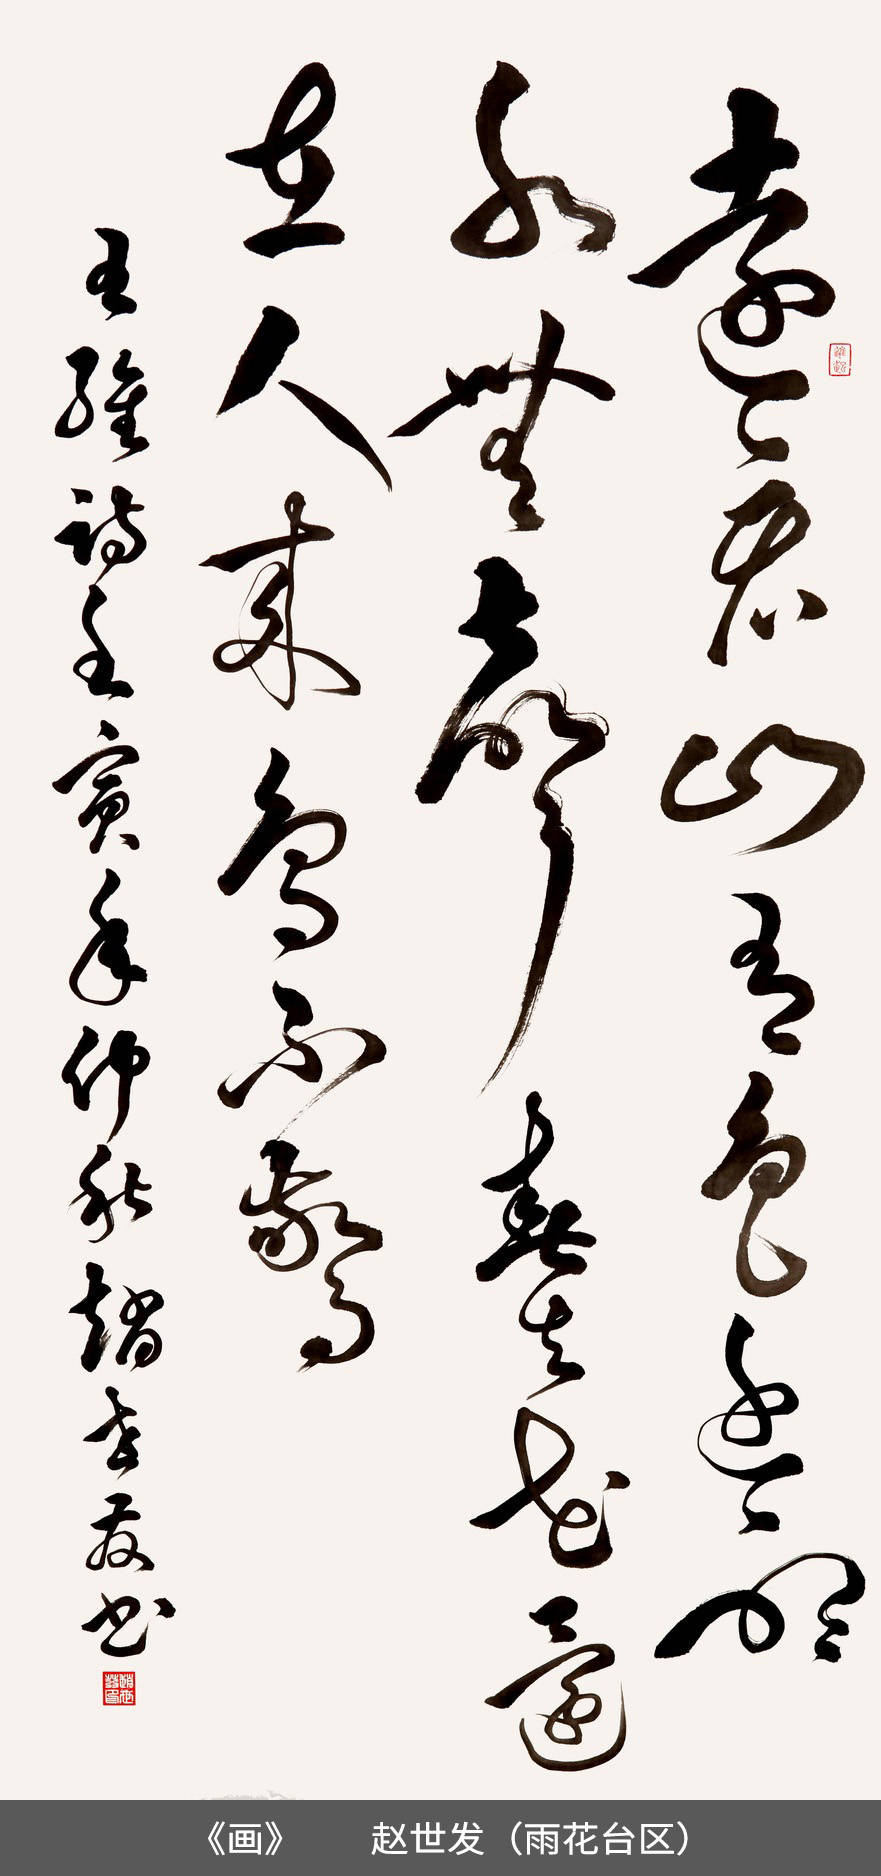 遠看山有色近聽
水無聲春去花還
在人來鳥不驚
王維詩壬寅年仲秋趙世發書
《画》 赵世发（雨花台区）